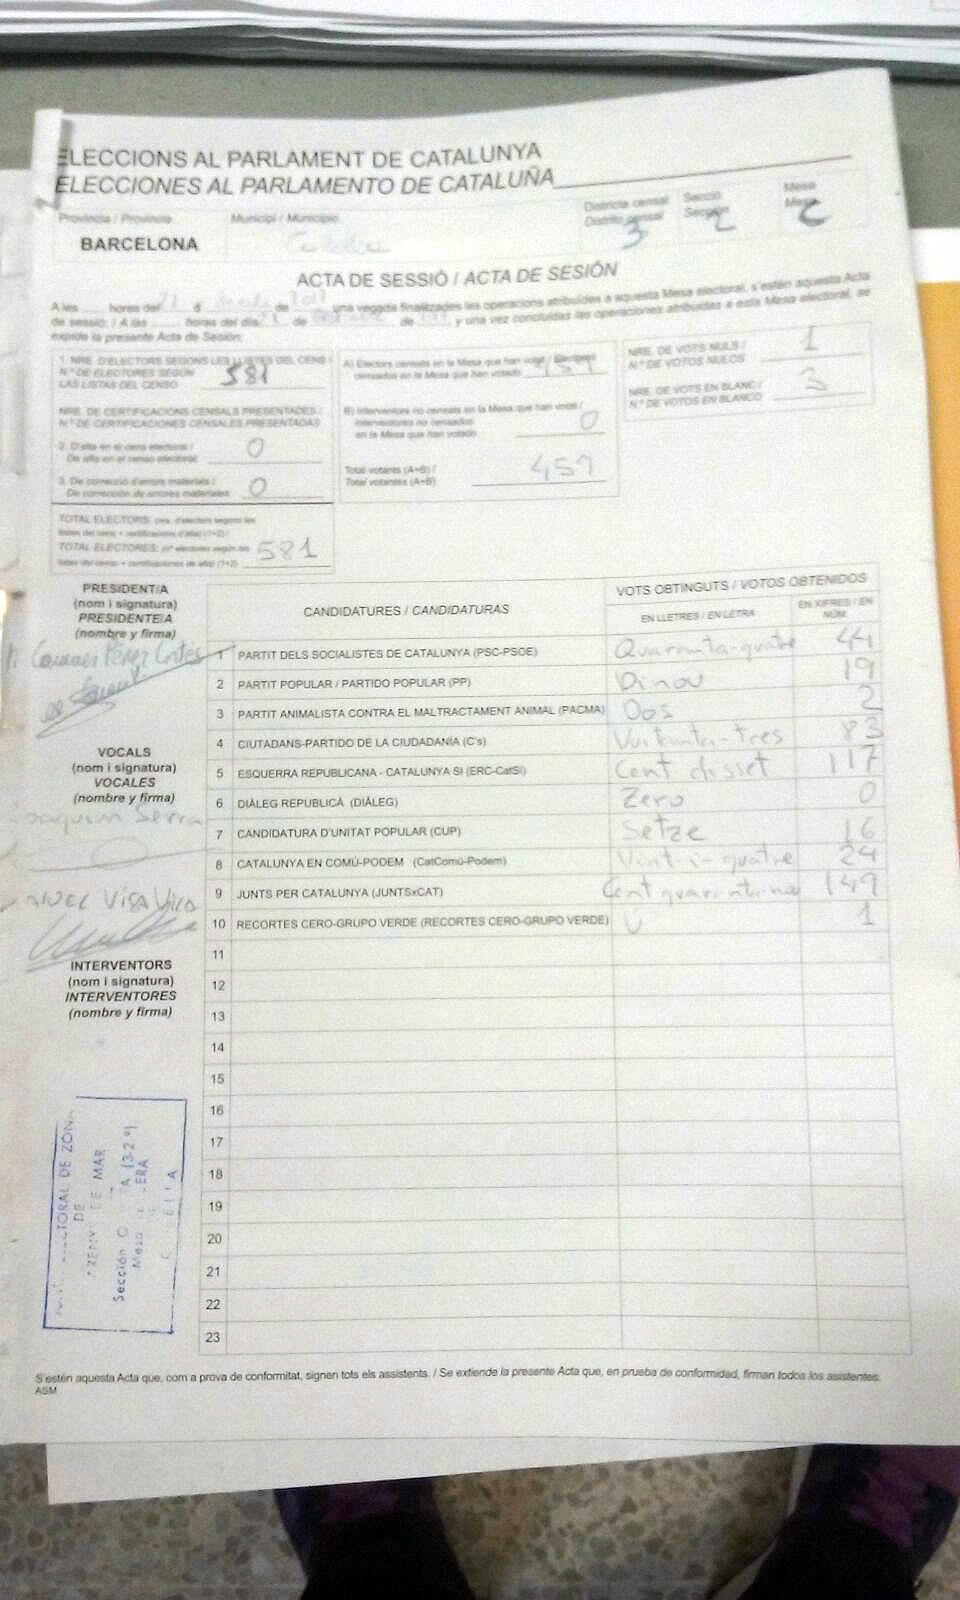 ELECCIONS AL PARLAMENT DE CATALUNYA
ELECCIONES AL PARLAMENTO DE CATALUÑA
Provincia / Provincia
BARCELONA
Municipi / Municipio
Districte censal
Distrito censal
3
Secció
Sección
2
Mesa
Mesa
C
ACTA DE SESSIÓ / ACTA DE SESIÓN
A les hores del d de 2017 una vegada finalitzades les operacions atribuïdes a aquesta Mesa electoral, s'estén aquesta Acta
de sessió: / A las horas del día de de y una vez concluidas las operaciones atribuidas a esta Mesa electoral, se
expide la presente Acta de Sesión:
1. NRE. D'ELECTORS SEGONS LES LLISTES DEL CENS /
N.º DE ELECTORES SEGÚN
LAS LISTAS DEL CENSO 581
NRE. DE CERTIFICACIONS CENSALS PRESENTADES /
N.º DE CERTIFICACIONES CENSALES PRESENTADAS
2. D'alta en el cens electoral /
De alta en el censo electoral: 0
3. De correcció d'errors materials /
De corrección de errores materiales: 0
TOTAL ELECTORS: (nre. d'electors segons les
llistes del cens + certificacions d'alta) (1+2) /
TOTAL ELECTORES: (nº electores según las
listas del censo + certificaciones de alta) (1+2) 581
A) Electors censats en la Mesa que han votat / Electores
censados en la Mesa que han votado 459
B) Interventors no censats en la Mesa que han votat /
Interventores no censados
en la Mesa que han votado 0
Total votants (A+B) /
Total votantes (A+B) 459
NRE. DE VOTS NULS /
N.º DE VOTOS NULOS 1
NRE. DE VOTS EN BLANC /
N.º DE VOTOS EN BLANCO 3
PRESIDENT/A
(nom i signatura)
PRESIDENTE/A
(nombre y firma)
Carmen Pérez Cortés
VOCALS
(nom i signatura)
VOCALES
(nombre y firma)
Joaquim Serra
INTERVENTORS
(nom i signatura)
INTERVENTORES
(nombre y firma)
CANDIDATURES / CANDIDATURAS
VOTS OBTINGUTS / VOTOS OBTENIDOS
EN LLETRES / EN LETRA
EN XIFRES / EN NÚM.
1 PARTIT DELS SOCIALISTES DE CATALUNYA (PSC-PSOE) Quaranta-quatre 44
2 PARTIT POPULAR / PARTIDO POPULAR (PP) Dinou 19
3 PARTIT ANIMALISTA CONTRA EL MALTRACTAMENT ANIMAL (PACMA) Dos 2
4 CIUTADANS-PARTIDO DE LA CIUDADANÍA (C's) Vuitanta-tres 83
5 ESQUERRA REPUBLICANA - CATALUNYA SI (ERC-CatSI) Cent disset 117
6 DIÀLEG REPUBLICÀ (DIÀLEG) Zero 0
7 CANDIDATURA D'UNITAT POPULAR (CUP) Setze 16
8 CATALUNYA EN COMÚ-PODEM (CatComú-Podem) Vint-i-quatre 24
9 JUNTS PER CATALUNYA (JUNTSxCAT) Cent 149
10 RECORTES CERO-GRUPO VERDE (RECORTES CERO-GRUPO VERDE) U 1
11
12
13
14
15
16
17
18
19
20
21
22
23
ELECTORAL DE ZONA
DE
ARENYS DE MAR
Sección (3-2.ª)
Mesa
S'estén aquesta Acta que, com a prova de conformitat, signen tots els assistents. / Se extiende la presente Acta que, en prueba de conformidad, firman todos los asistentes.
ASM